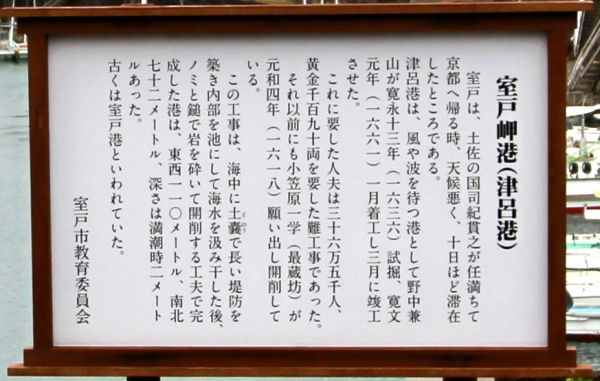 室戸岬港(津呂港)
室戸は、土佐の国司紀貫之が任満ちて
京都へ帰る時、天候悪く、十日ほど滞在
したところである。
津呂港は、風や波を待つ港として野中兼
山が寛永十三年(一六三六)試掘、寛文
元年(一六六一)一月着工し三月に竣工
させた。
これに要した人夫は三十六万五千人、
黄金千百九十両を要した難工事であった。
それ以前にも小笠原一学(最蔵坊)が
元和四年(一六一八)願い出し開削して
いる。
この工事は、海中に土嚢で長い堤防を
築き内部を池にして海水を汲み干した後、
ノミと鎚で岩を砕いて開削する工夫で完
成した港は、東西一一〇メートル、南北
七十二メートル、深さは満潮時二メート
ルあった。
古くは室戸港といわれていた。
室戸市教育委員会